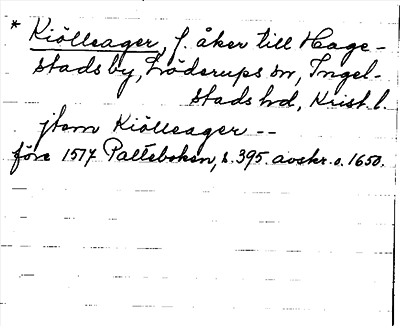 * Kiöllsager, f. åker till Hage-
stads by, Löderups sn, Ingel-
stads hd, Krist. l.
jtem Kiöllsager --
före 1517 Palteboken, s. 395. avskr. o. 1650.